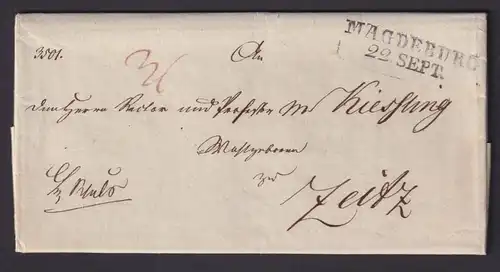 3501.
An
MAGDEBURG
22 SEPT.
den Herrn Rector und Professor M Kiessling
Wohlgeboren
zu
Zeitz